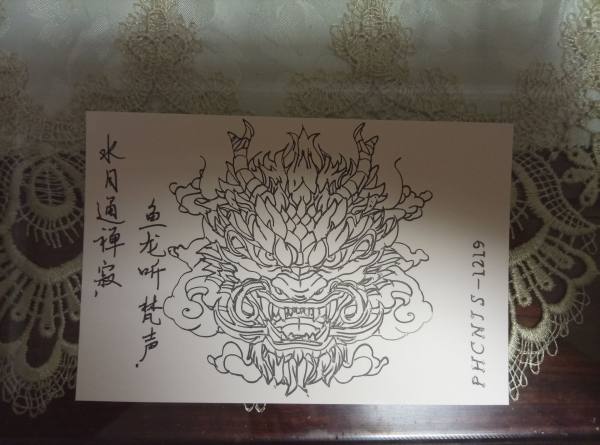 水月通禅寂
鱼龙听梵声.
PHCNJS-1219